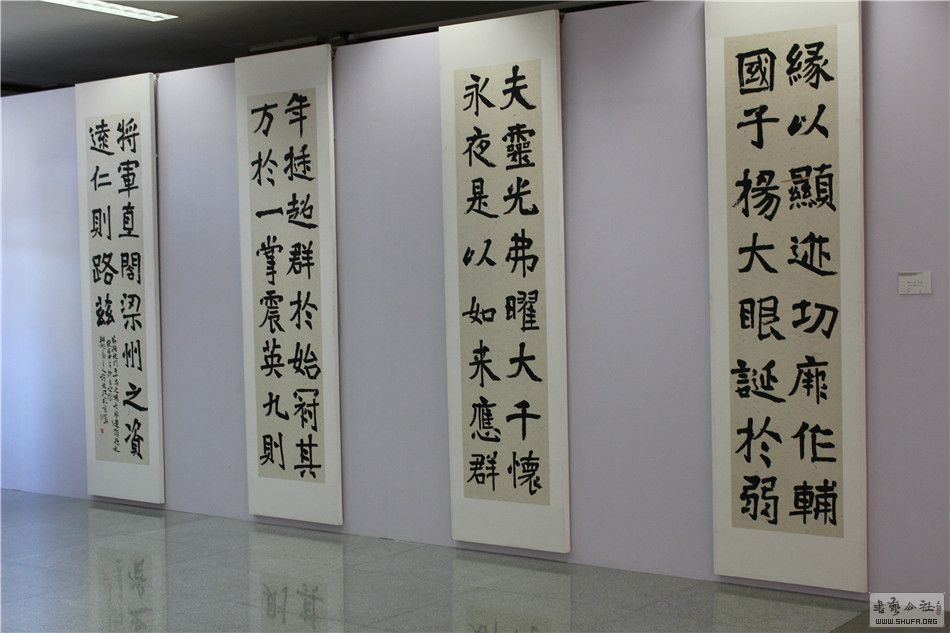 緣以顯迹切靡作輔
國子楊大眼誕於弱
夫靈光弗曜大千懷
永夜是以如来應群
年挺超群於始冠其
方於一掌震英九則
將軍直閣梁州之資
遠仁則路兹
書藝公社
WWW.SHUFA.ORG